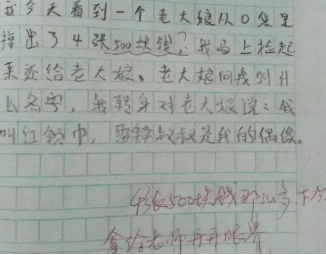 我今天看到一个老大娘从0袋里
掉出了4张500块钱,我马上捡起
来还给老大娘、老大娘问我叫什
么名字,我转身对老大娘说:我
叫红领巾,雷锋叔叔是我的偶像。
4张500块钱那么多,下次
拿给老师开开眼界